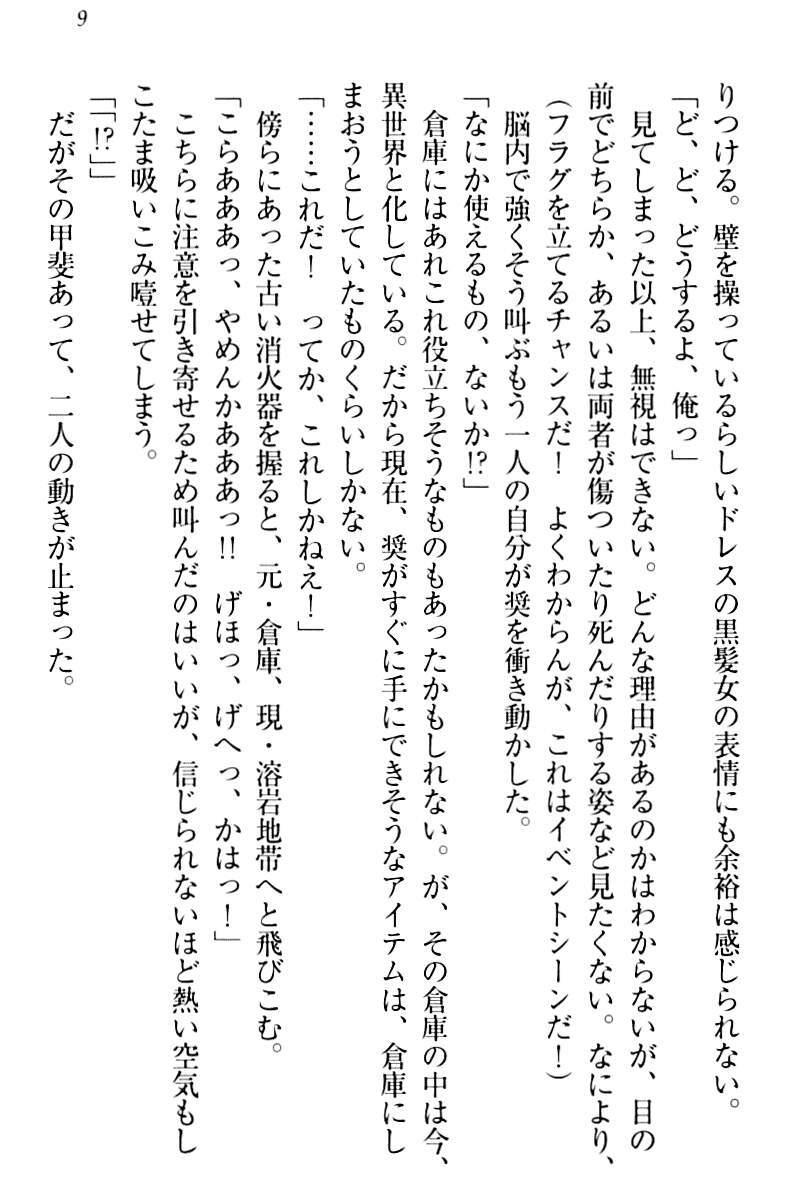 9
りつける。壁を操っているらしいドレスの黒髪女の表情にも余裕は感じられない。
「ど、ど、どうするよ、俺っ」
見てしまった以上、無視はできない。どんな理由があるのかはわからないが、目の
前でどちらか、あるいは両者が傷ついたり死んだりする姿など見たくない。なにより、
（フラグを立てるチャンスだ！　よくわからんが、これはイベントシーンだ！）
脳内で強くそう叫ぶもう一人の自分が奨を衝き動かした。
「なにか使えるもの、ないか!?」
倉庫にはあれこれ役立ちそうなものもあったかもしれない。が、その倉庫の中は今、
異世界と化している。だから現在、奨がすぐに手にできそうなアイテムは、倉庫にし
まおうとしていたものくらいしかない。
「……これだ！　ってか、これしかねえ！」
傍らにあった古い消火器を握ると、元・倉庫、現・溶岩地帯へと飛びこむ。
「こらあああっ、やめんかあああっ!!　げほっ、げへっ、かはっ！」
こちらに注意を引き寄せるため叫んだのはいいが、信じられないほど熱い空気もし
こたま吸いこみ噎せてしまう。
「「!?」」
だがその甲斐あって、二人の動きが止まった。